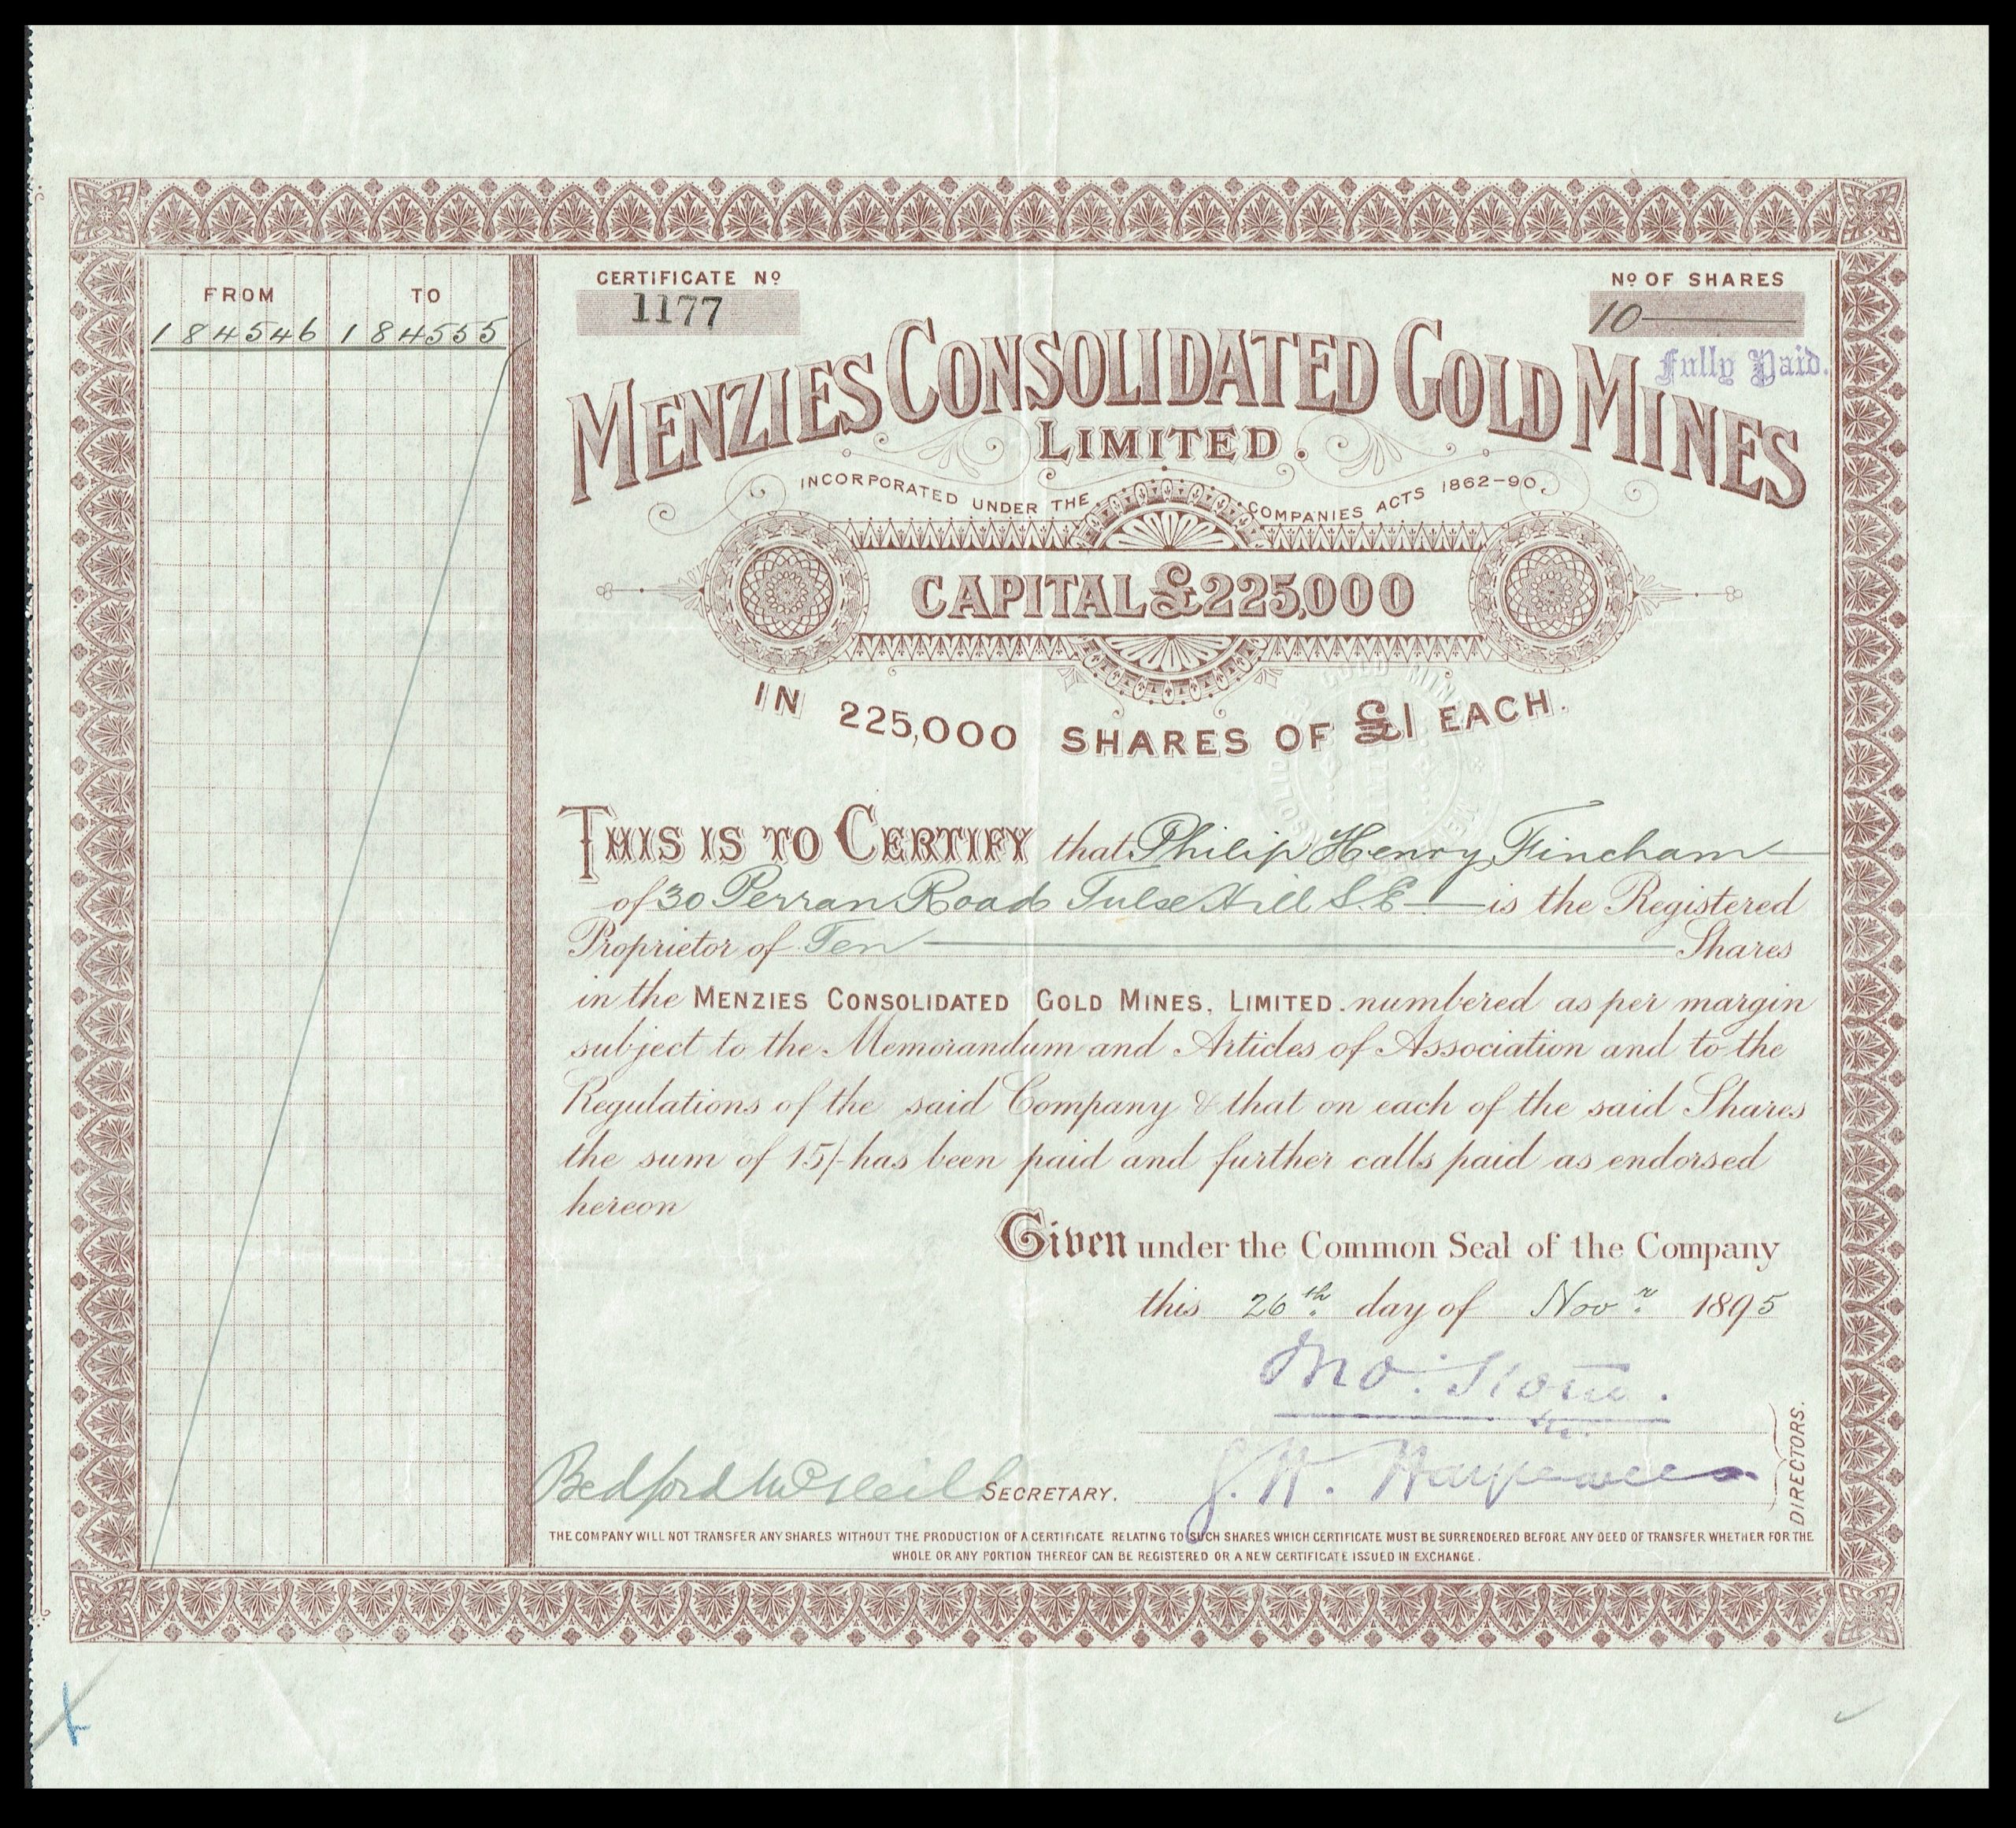 FROM TO
184546 184555
CERTIFICATE Nº
1177
Nº OF SHARES
10
Fully Paid.
MENZIES CONSOLIDATED GOLD MINES
LIMITED.
INCORPORATED UNDER THE COMPANIES ACTS 1862-90.
CAPITAL £225,000
IN 225,000 SHARES OF £1 EACH.
THIS IS TO CERTIFY that Philip Henry Fincham
of 30 Perran Road Tulse Hill S.E. is the Registered
Proprietor of Ten Shares
in the MENZIES CONSOLIDATED GOLD MINES, LIMITED. numbered as per margin
subject to the Memorandum and Articles of Association and to the
Regulations of the said Company & that on each of the said Shares
the sum of 15/- has been paid and further calls paid as endorsed
hereon
Given under the Common Seal of the Company
this 26th day of Novr 1895
DIRECTORS.
Bedford McNeill SECRETARY.
THE COMPANY WILL NOT TRANSFER ANY SHARES WITHOUT THE PRODUCTION OF A CERTIFICATE RELATING TO SUCH SHARES WHICH CERTIFICATE MUST BE SURRENDERED BEFORE ANY DEED OF TRANSFER WHETHER FOR THE
WHOLE OR ANY PORTION THEREOF CAN BE REGISTERED OR A NEW CERTIFICATE ISSUED IN EXCHANGE.